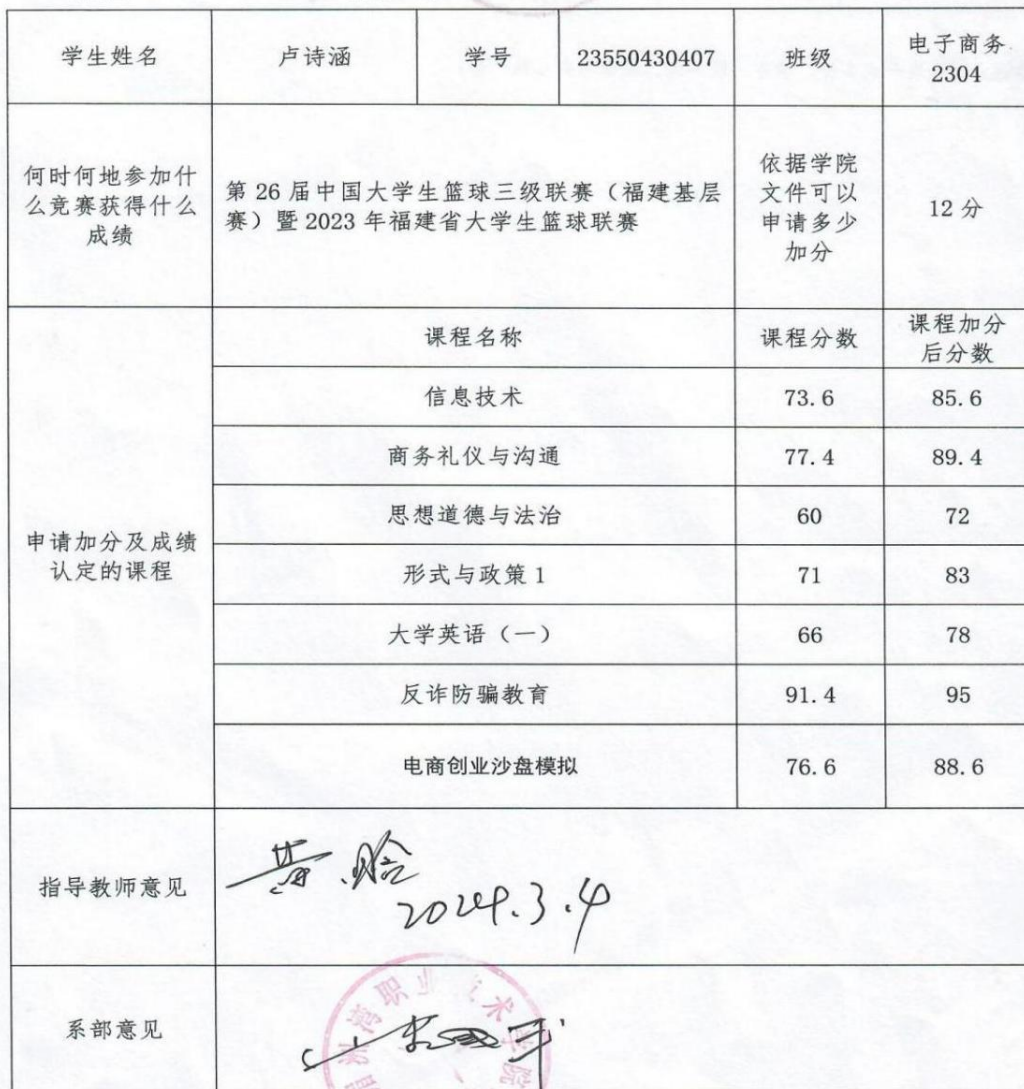 学生姓名 卢诗涵 学号 23550430407 班级 电子商务
2304
何时何地参加什
么竞赛获得什么
成绩
第 26 届中国大学生篮球三级联赛（福建基层
赛）暨 2023 年福建省大学生篮球联赛
依据学院
文件可以
申请多少
加分
12 分
申请加分及成绩
认定的课程
课程名称 课程分数 课程加分
后分数
信息技术 73.6 85.6
商务礼仪与沟通 77.4 89.4
思想道德与法治 60 72
形式与政策 1 71 83
大学英语（一） 66 78
反诈防骗教育 91.4 95
电商创业沙盘模拟 76.6 88.6
指导教师意见
黄
2024.3.4
系部意见
湾职业技术学院